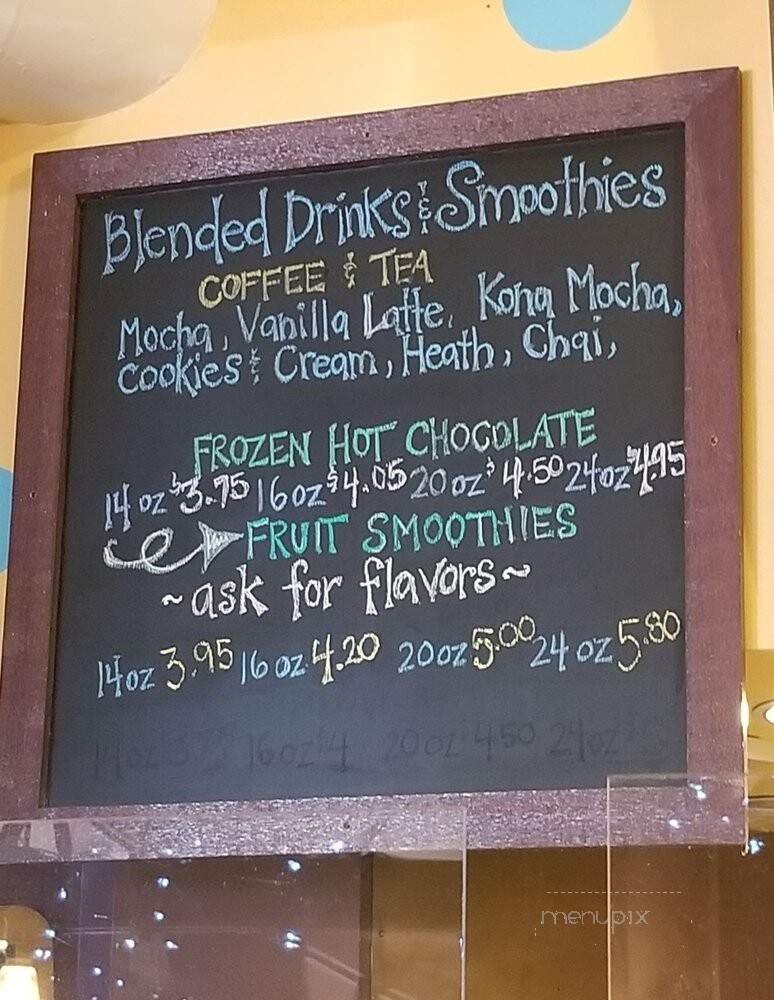 Blended Drinks & Smoothies
COFFEE & TEA
Mocha, Vanilla Latte, Kona Mocha,
Cookies & Cream, Heath, Chai,
FROZEN HOT CHOCOLATE
14 oz $3.75 16 oz $4.05 20 oz $4.50 24 oz $4.95
FRUIT SMOOTHIES
~ask for flavors~
14 oz 3.95 16 oz 4.20 20 oz 5.00 24 oz 5.80
14 oz 16 oz $4 20 oz 4.50 24 oz
menupix